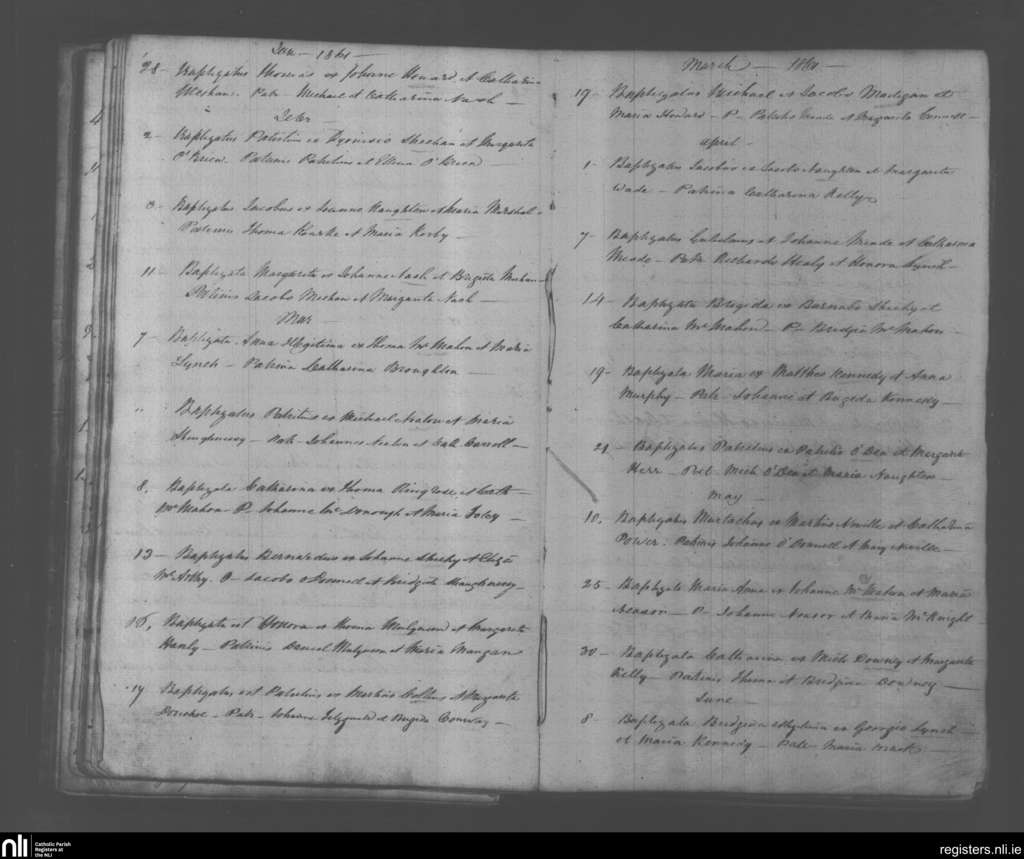 Jan - 1861 -
28 - Baptizatus Thomas ex Johanne Howard et Catharina
Meehan. Patr - Michael et Catharina Nash -
Feber -
2 - Baptizatus Patritius ex Dyonisio Sheehan et Margareta
O'Brien. Patrinis Patritius et Ellena O'Brien -
Baptizatus Jacobus ex Joanne Naughton et Maria Marshal -
Patrinis Thoma Rourke et Maria Kirby -
11 - Baptizata Margareta ex Johanne Nash et Brigida Meehan -
Patrinis Jacobo Meehan et Margareta Nash -
Mar -
7 - Baptizata Anna Illegitima ex Thoma McMahon et Maria
Lynch - Patrina Catharina Broughton -
" Baptizatus Patritius ex Michael et Maria
- Patr - Johannes et Cath Carroll -
8. Baptizata Catharina ex Thoma Ringrose et Cath -
McMahon P - Johanne McDonough et Maria Foley -
13 - Baptizatus Bernardus ex Johanne Sheehy et Eliza
P - Jacobo O'Donnell et Bridgida Shaughnessy -
15, Baptizata est Honora ex Thoma Mulqueen et Margareta
Hanly - Patrinis Daniel Mulqueen et Maria Mangan
17 Baptizatus est Patritius ex Martino Collins et Margareta
Donohoe - Patr - Johanne Fitzgerald et Brigida Conway -
March - 1861 -
19 - Baptizatus Michael ex Jacobo Madigan et
Maria Howard - P - Patritio Meade et Margarita Connell -
April -
1 - Baptizatus Jacobus ex Jacobo Naughton et Margareta
Wade - Patrina Catharina Kelly -
7 - Baptizatus ex Johanne Meade et Catharina
Meade - Patr Richardo Healy et Honora Lynch -
14 - Baptizata Brigida ex Barnabo Sheehy et
Catharina McMahon - P - Bridgia McMahon -
19 - Baptizata Maria ex Mattheo Kennedy et Anna
Murphy - Patr - Johanne et Brigida Kennedy -
21 - Baptizatus Patritius ex Patritio O'Dea et Margaret
Herr - Patr - Mich O'Dea et Maria Naughton -
May -
10. Baptizatus Murtachus ex Martino Neville et Catharina
Power. Patrinis Johanne O'Donnell et Mary Neville -
25 - Baptizata Maria Anna ex Johanne McMahon et Maria
Neason - P - Johanne Neason et Maria McKnight -
30 - Baptizata Catharina ex Mich Downey et Margareta
Kelly - Patrinis Thoma et Bridgina Downey -
June -
8 - Baptizata Bridgida ex Georgio Lynch
et Maria Kennedy - Patr - Maria
nli Catholic Parish
Registers at
the NLI
registers.nli.ie